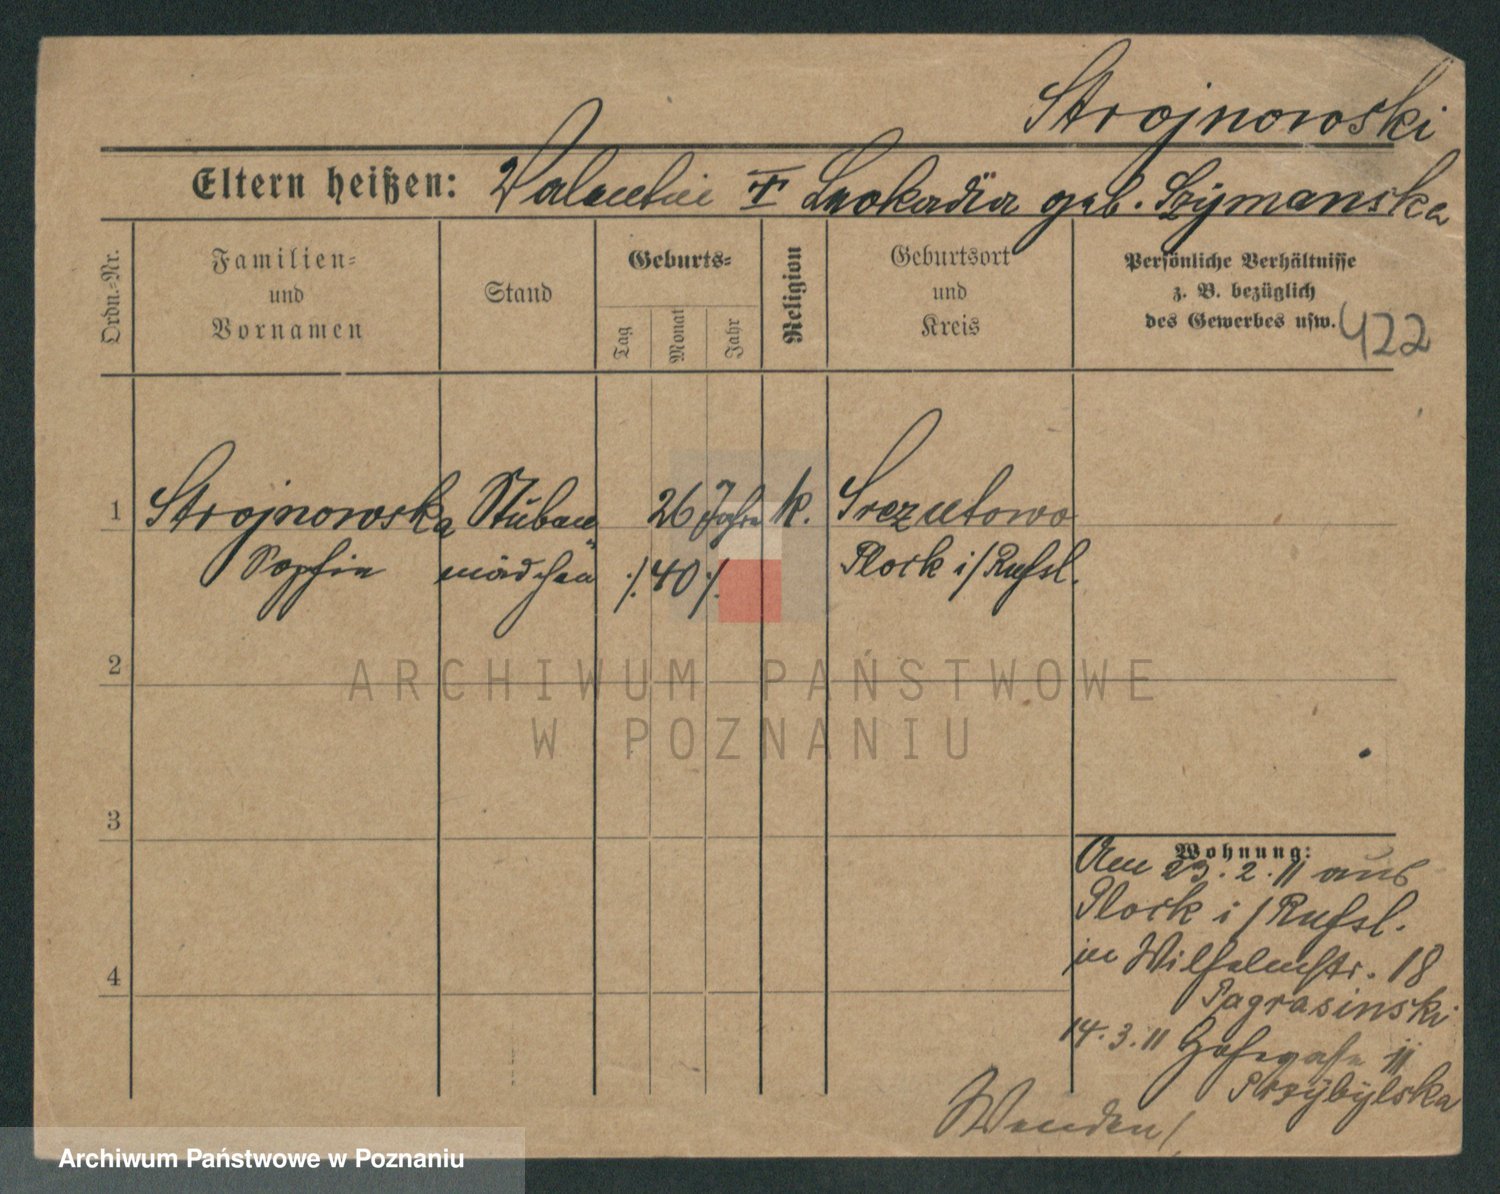 Strojnowski
Eltern heißen: Valentin † Leokadia geb. Szymanska
Ordn.-Nr.
Familien-
und
Vornamen
Stand
Geburts-
Tag
Monat
Jahr
Religion
Geburtsort
und
Kreis
Persönliche Verhältnisse
z. B. bezüglich
des Gewerbes usw.
422
1 Strojnowska Stuben 26 Jahre k.
Sophie mädchen ./. 40 ./. Plock i/Rußl.
2
ARCHIWUM PAŃSTWOWE
W POZNANIU
3
Wohnung:
Am 23.2.11 aus
Plock i/Rußl.
in Wilhelmstr. 18
4
14.3.11
Przybylska
Wenden!
Archiwum Państwowe w Poznaniu